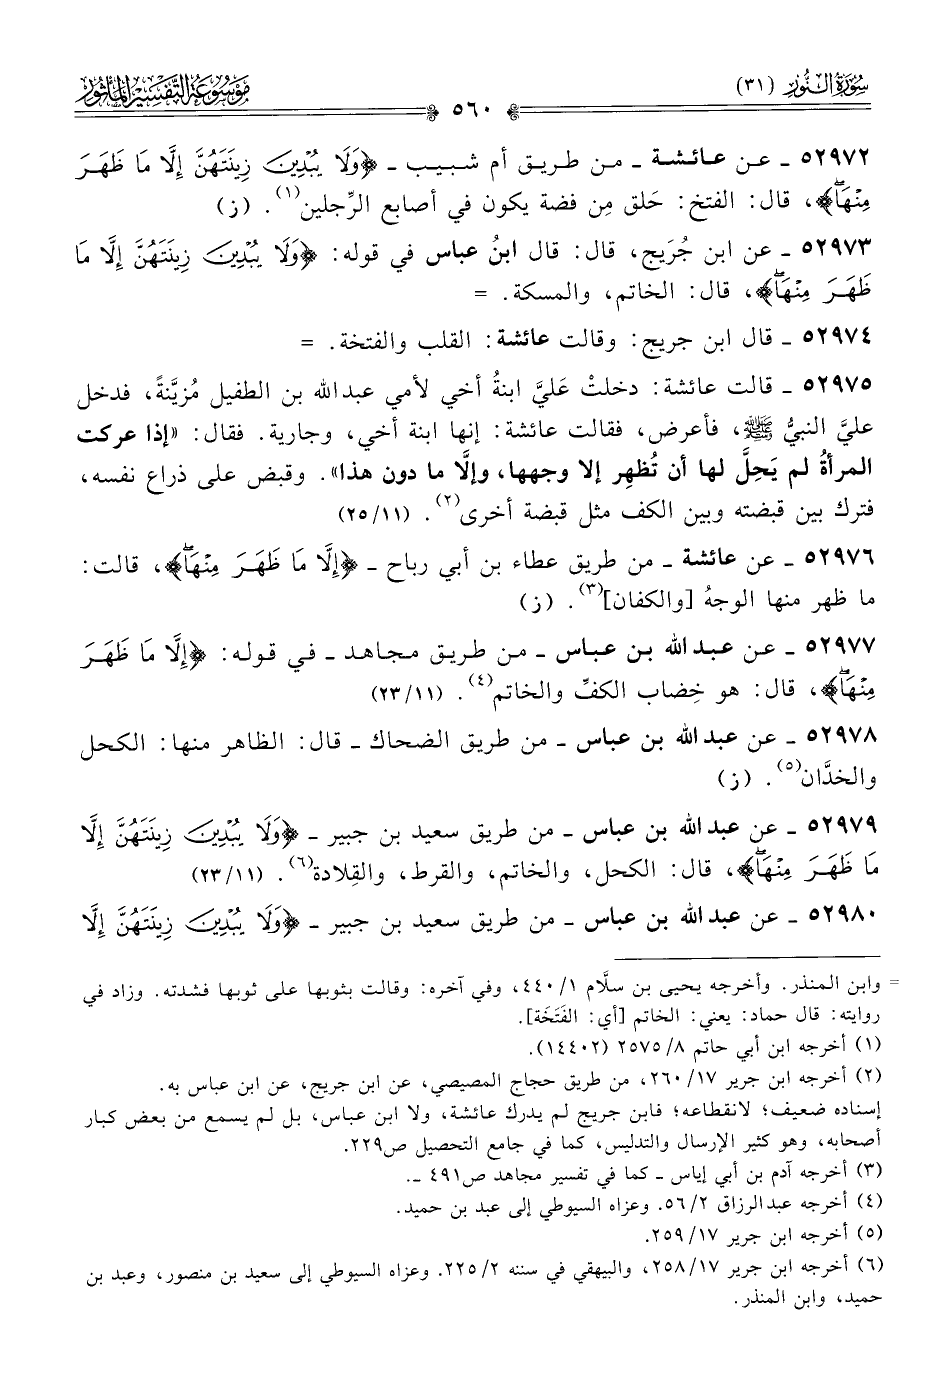 سُورَةُ النُّور (٣١)
٥٦٠
مَوْسُوعَةُ التَّفْسِيرِ المَأْثُور
٥٢٩٧٢ ـ عن عائشة ـ من طريق أم شبيب ـ ﴿وَلَا يُبْدِينَ زِينَتَهُنَّ إِلَّا مَا ظَهَرَ
مِنْهَاۖ﴾، قال: الفتخ: حَلق مِن فضة يكون في أصابع الرِّجلين(١). (ز)
٥٢٩٧٣ ـ عن ابن جُرَيج، قال: قال ابنُ عباس في قوله: ﴿وَلَا يُبْدِينَ زِينَتَهُنَّ إِلَّا مَا
ظَهَرَ مِنْهَاۖ﴾، قال: الخاتم، والمسكة. =
٥٢٩٧٤ ـ قال ابن جريج: وقالت عائشة: القلب والفتخة. =
٥٢٩٧٥ ـ قالت عائشة: دخلتْ عَليَّ ابنةُ أخي لأمي عبد الله بن الطفيل مُزيَّنةً، فدخل
عليَّ النبيُّ ﷺ، فأعرض، فقالت عائشة: إنها ابنة أخي، وجارية. فقال: «إذا عركت
المرأةُ لم يَحِلَّ لها أن تُظهِر إلا وجهها، وإلَّا ما دون هذا». وقبض على ذراع نفسه،
فترك بين قبضته وبين الكف مثل قبضة أخرى(٢). (٢٥/١١)
٥٢٩٧٦ ـ عن عائشة ـ من طريق عطاء بن أبي رباح ـ ﴿إِلَّا مَا ظَهَرَ مِنْهَاۖ﴾، قالت:
ما ظهر منها الوجهُ [والكفان](٣). (ز)
٥٢٩٧٧ ـ عن عبد الله بن عباس ـ من طريق مجاهد ـ في قوله: ﴿إِلَّا مَا ظَهَرَ
مِنْهَاۖ﴾، قال: هو خِضاب الكفِّ والخاتم(٤). (٢٣/١١)
٥٢٩٧٨ ـ عن عبد الله بن عباس ـ من طريق الضحاك ـ قال: الظاهر منها: الكحل
والخدَّان(٥). (ز)
٥٢٩٧٩ ـ عن عبد الله بن عباس ـ من طريق سعيد بن جبير ـ ﴿وَلَا يُبْدِينَ زِينَتَهُنَّ إِلَّا
مَا ظَهَرَ مِنْهَاۖ﴾، قال: الكحل، والخاتم، والقرط، والقِلادة(٦). (٢٣/١١)
٥٢٩٨٠ ـ عن عبد الله بن عباس ـ من طريق سعيد بن جبير ـ ﴿وَلَا يُبْدِينَ زِينَتَهُنَّ إِلَّا
= وابن المنذر. وأخرجه يحيى بن سلَّام ٤٤٠/١، وفي آخره: وقالت بثوبها على ثوبها فشدته. وزاد في
روايته: قال حماد: يعني: الخاتم [أي: الفَتَخَة].
(١) أخرجه ابن أبي حاتم ٢٥٧٥/٨ (١٤٤٠٢).
(٢) أخرجه ابن جرير ٢٦٠/١٧، من طريق حجاج المصيصي، عن ابن جريج، عن ابن عباس به.
إسناده ضعيف؛ لانقطاعه؛ فابن جريج لم يدرك عائشة، ولا ابن عباس، بل لم يسمع من بعض كبار
أصحابه، وهو كثير الإرسال والتدليس، كما في جامع التحصيل ص٢٢٩.
(٣) أخرجه آدم بن أبي إياس ـ كما في تفسير مجاهد ص٤٩١ ـ.
(٤) أخرجه عبدالرزاق ٥٦/٢. وعزاه السيوطي إلى عبد بن حميد.
(٥) أخرجه ابن جرير ٢٥٩/١٧.
(٦) أخرجه ابن جرير ٢٥٨/١٧، والبيهقي في سننه ٢٢٥/٢. وعزاه السيوطي إلى سعيد بن منصور، وعبد بن
حميد، وابن المنذر.